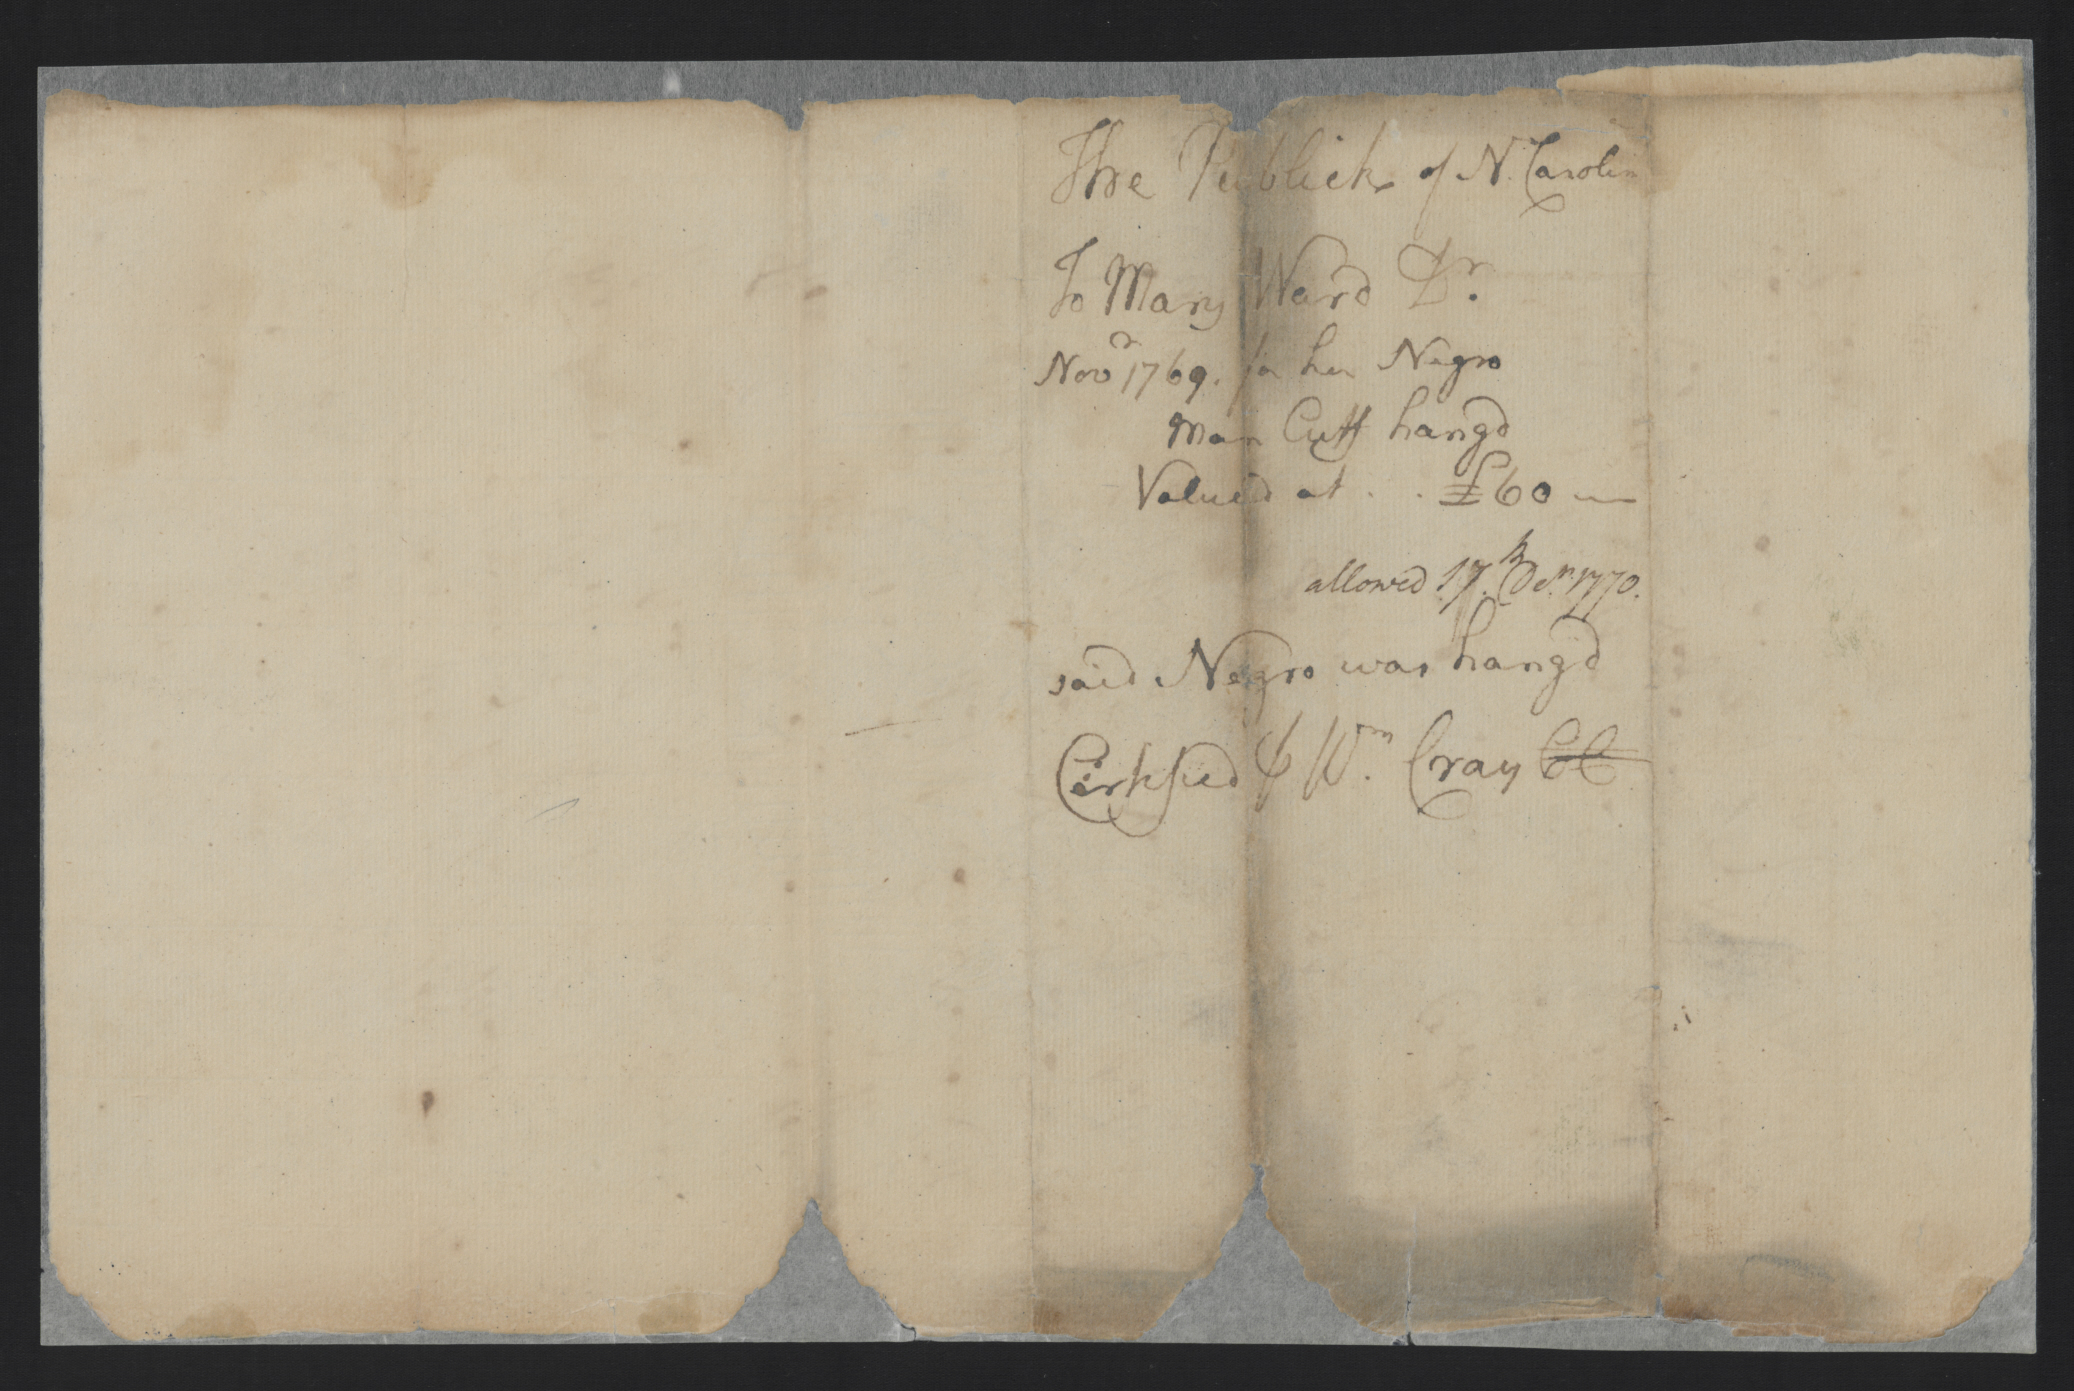 The Publick of N. Carolin
To Mary Ward Dr.
Novr 1769. for her Negro
Man Cuff hangd
Valued at . . £60 —
allowed 17.th Der. 1770.
said Negro was hang'd
Certified ⅌ Wm. Cray CC